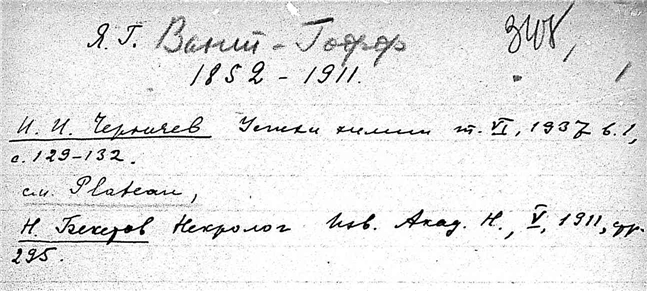 Я. Г. Вант-Гофф
1852 - 1911.
И. И. Черняев Успехи химии т. VI, 1937 в. 1,
с. 129-132.
см. Plateau,
Н. Бекетов Некролог Изв. Акад. Н., V, 1911, стр.
295.